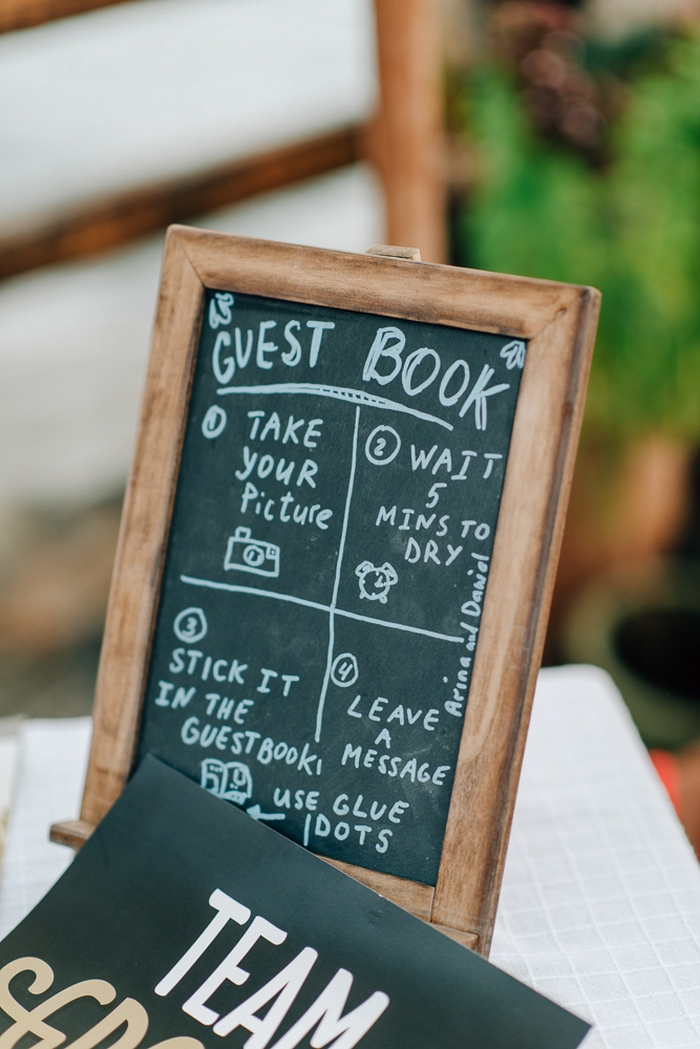 GUEST BOOK
1
TAKE
YOUR
Picture
2
WAIT
5
MINS TO
DRY
3
STICK IT
IN THE
GUESTBOOK!
4
LEAVE
A
MESSAGE
USE GLUE
DOTS
Arina and Daniel
TEAM